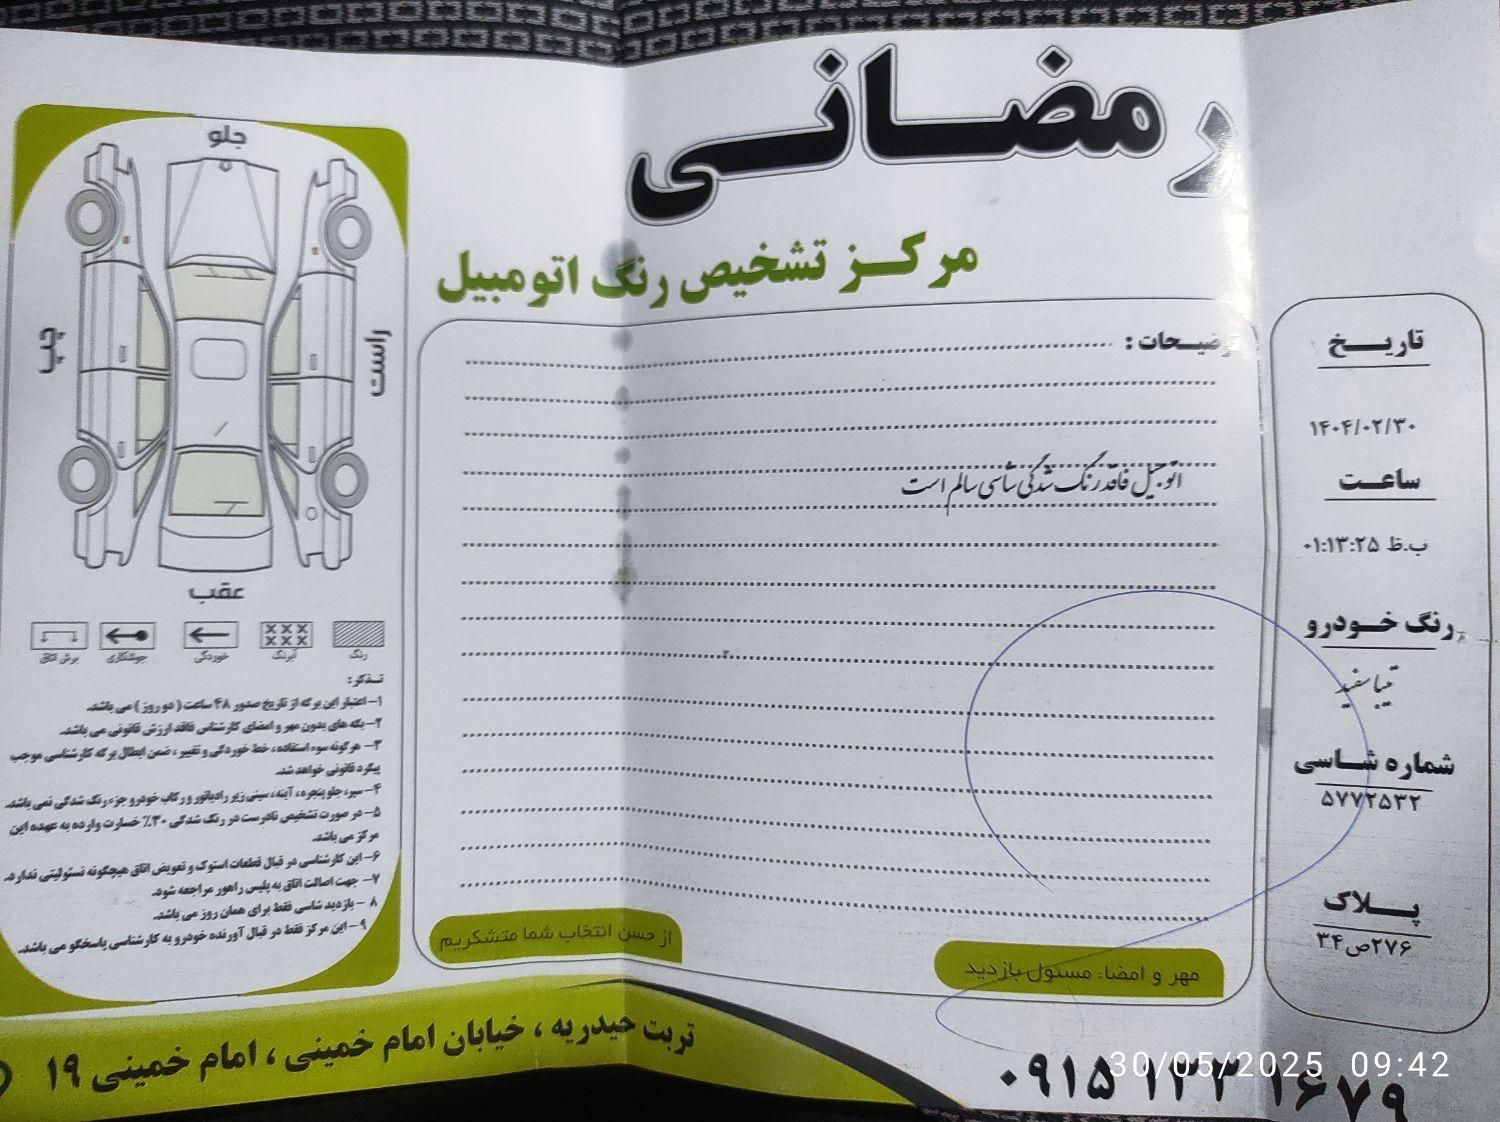 رمضانی
مرکز تشخیص رنگ اتومبیل
توضیحات :
اتومبیل فاقد رنگ شدگی شاسی سالم است
مهر و امضاء مسئول بازدید
از حسن انتخاب شما متشکریم
تاریخ
۱۴۰۴/۰۲/۳۰
ساعت
۰۱:۱۳:۲۵ ب.ظ
رنگ خودرو
تیبا سفید
شماره شاسی
۵۷۷۲۵۳۲
پلاک
۲۷۶ص۳۴
جلو
راست
چپ
عقب
رنگ
آبرنگ
خوردگی
جوشکاری
برش اتاق
تذکر:
۱- اعتبار این برگه از تاریخ صدور ۴۸ ساعت ( دو روز ) می باشد.
۲- برگه های بدون مهر و امضای کارشناسی فاقد ارزش قانونی می باشد.
۳- هرگونه سوء استفاده ، خط خوردگی و تغییر ، ضمن ابطال برگه کارشناسی موجب
پیگرد قانونی خواهد شد.
۴- سپر، جلوپنجره ، آینه، سینی زیر رادیاتور و رکاب خودرو جزء رنگ شدگی نمی باشد.
۵- در صورت تشخیص نادرست در رنگ شدگی ۳۰٪ خسارت وارده به عهده این
مرکز می باشد.
۶- این کارشناسی در قبال قطعات استوک و تعویض اتاق هیچگونه مسئولیتی ندارد.
۷- جهت اصالت اتاق به پلیس راهور مراجعه شود.
۸ - بازدید شاسی فقط برای همان روز می باشد.
۹- این مرکز فقط در قبال آورنده خودرو به کارشناسی پاسخگو می باشد.
تربت حیدریه ، خیابان امام خمینی ، امام خمینی ۱۹
۰۹۱۵ ۱۳۳ ۱۶۷۹
30/05/2025 09:42